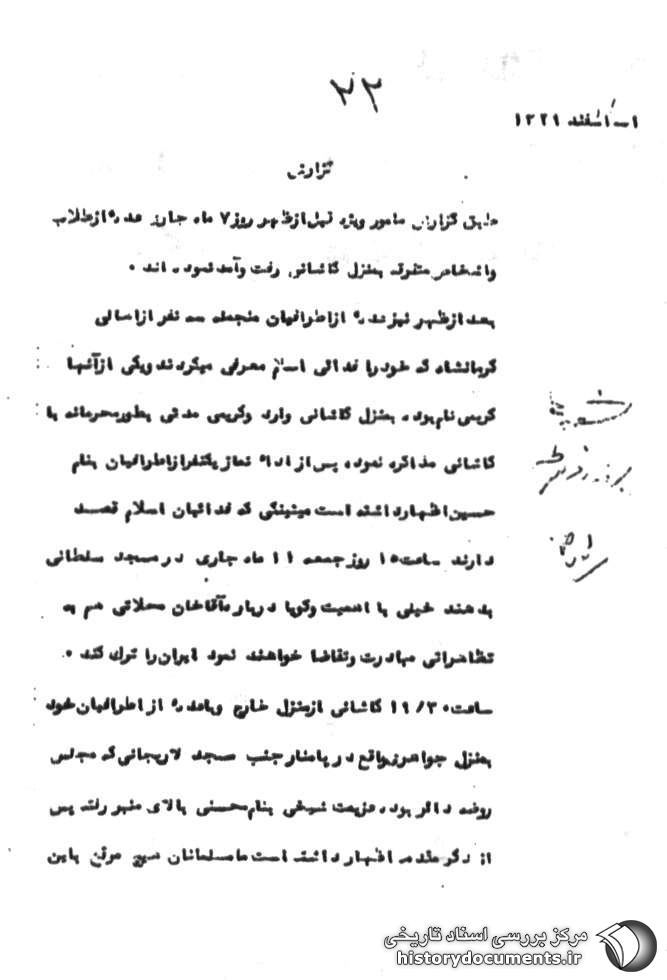 ۲۲
اسفند ۱۳۲۹
گزارش
طبق گزارش مامور ویژه قبل از ظهر روز ۷ ماه جاری عده از طلاب
و اشخاص متفرقه بمنزل کاشانی رفت و آمد نموده اند .
بعد از ظهر نیز عده از اطرافیان منجمله سه نفر از اهالی
کرمانشاه که خود را فدائی اسلام معرفی میکردند و یکی از آنها
کریمی نام بوده بمنزل کاشانی وارد و کریمی مدتی بطور محرمانه با
کاشانی مذاکره نموده پس از اداء نماز یکنفر از اطرافیان بنام
حسین اظهار داشته است میتینگی که فدائیان اسلام قصد
دارند ساعت ۱۵ روز جمعه ۱۱ ماه جاری در مسجد سلطانی
بدهند خیلی با اهمیت و گویا درباره آقاخان محلاتی هم به
تظاهراتی مبادرت و تقاضا خواهند نمود ایران را ترک کند .
ساعت ۱۹/۳۰ کاشانی از منزل خارج و با عده از اطرافیان خود
بمنزل جواهری واقع در پامنار جنب مسجد لاریجانی که مجلس
روضه دائر بوده عزیمت شیخی بنام محسنی بالای منبر رفته پس
از ذکر مقدمه اظهار داشته است ما مسلمانان هیچ موقع باین
مرکز بررسی اسناد تاریخی
historydocuments.ir